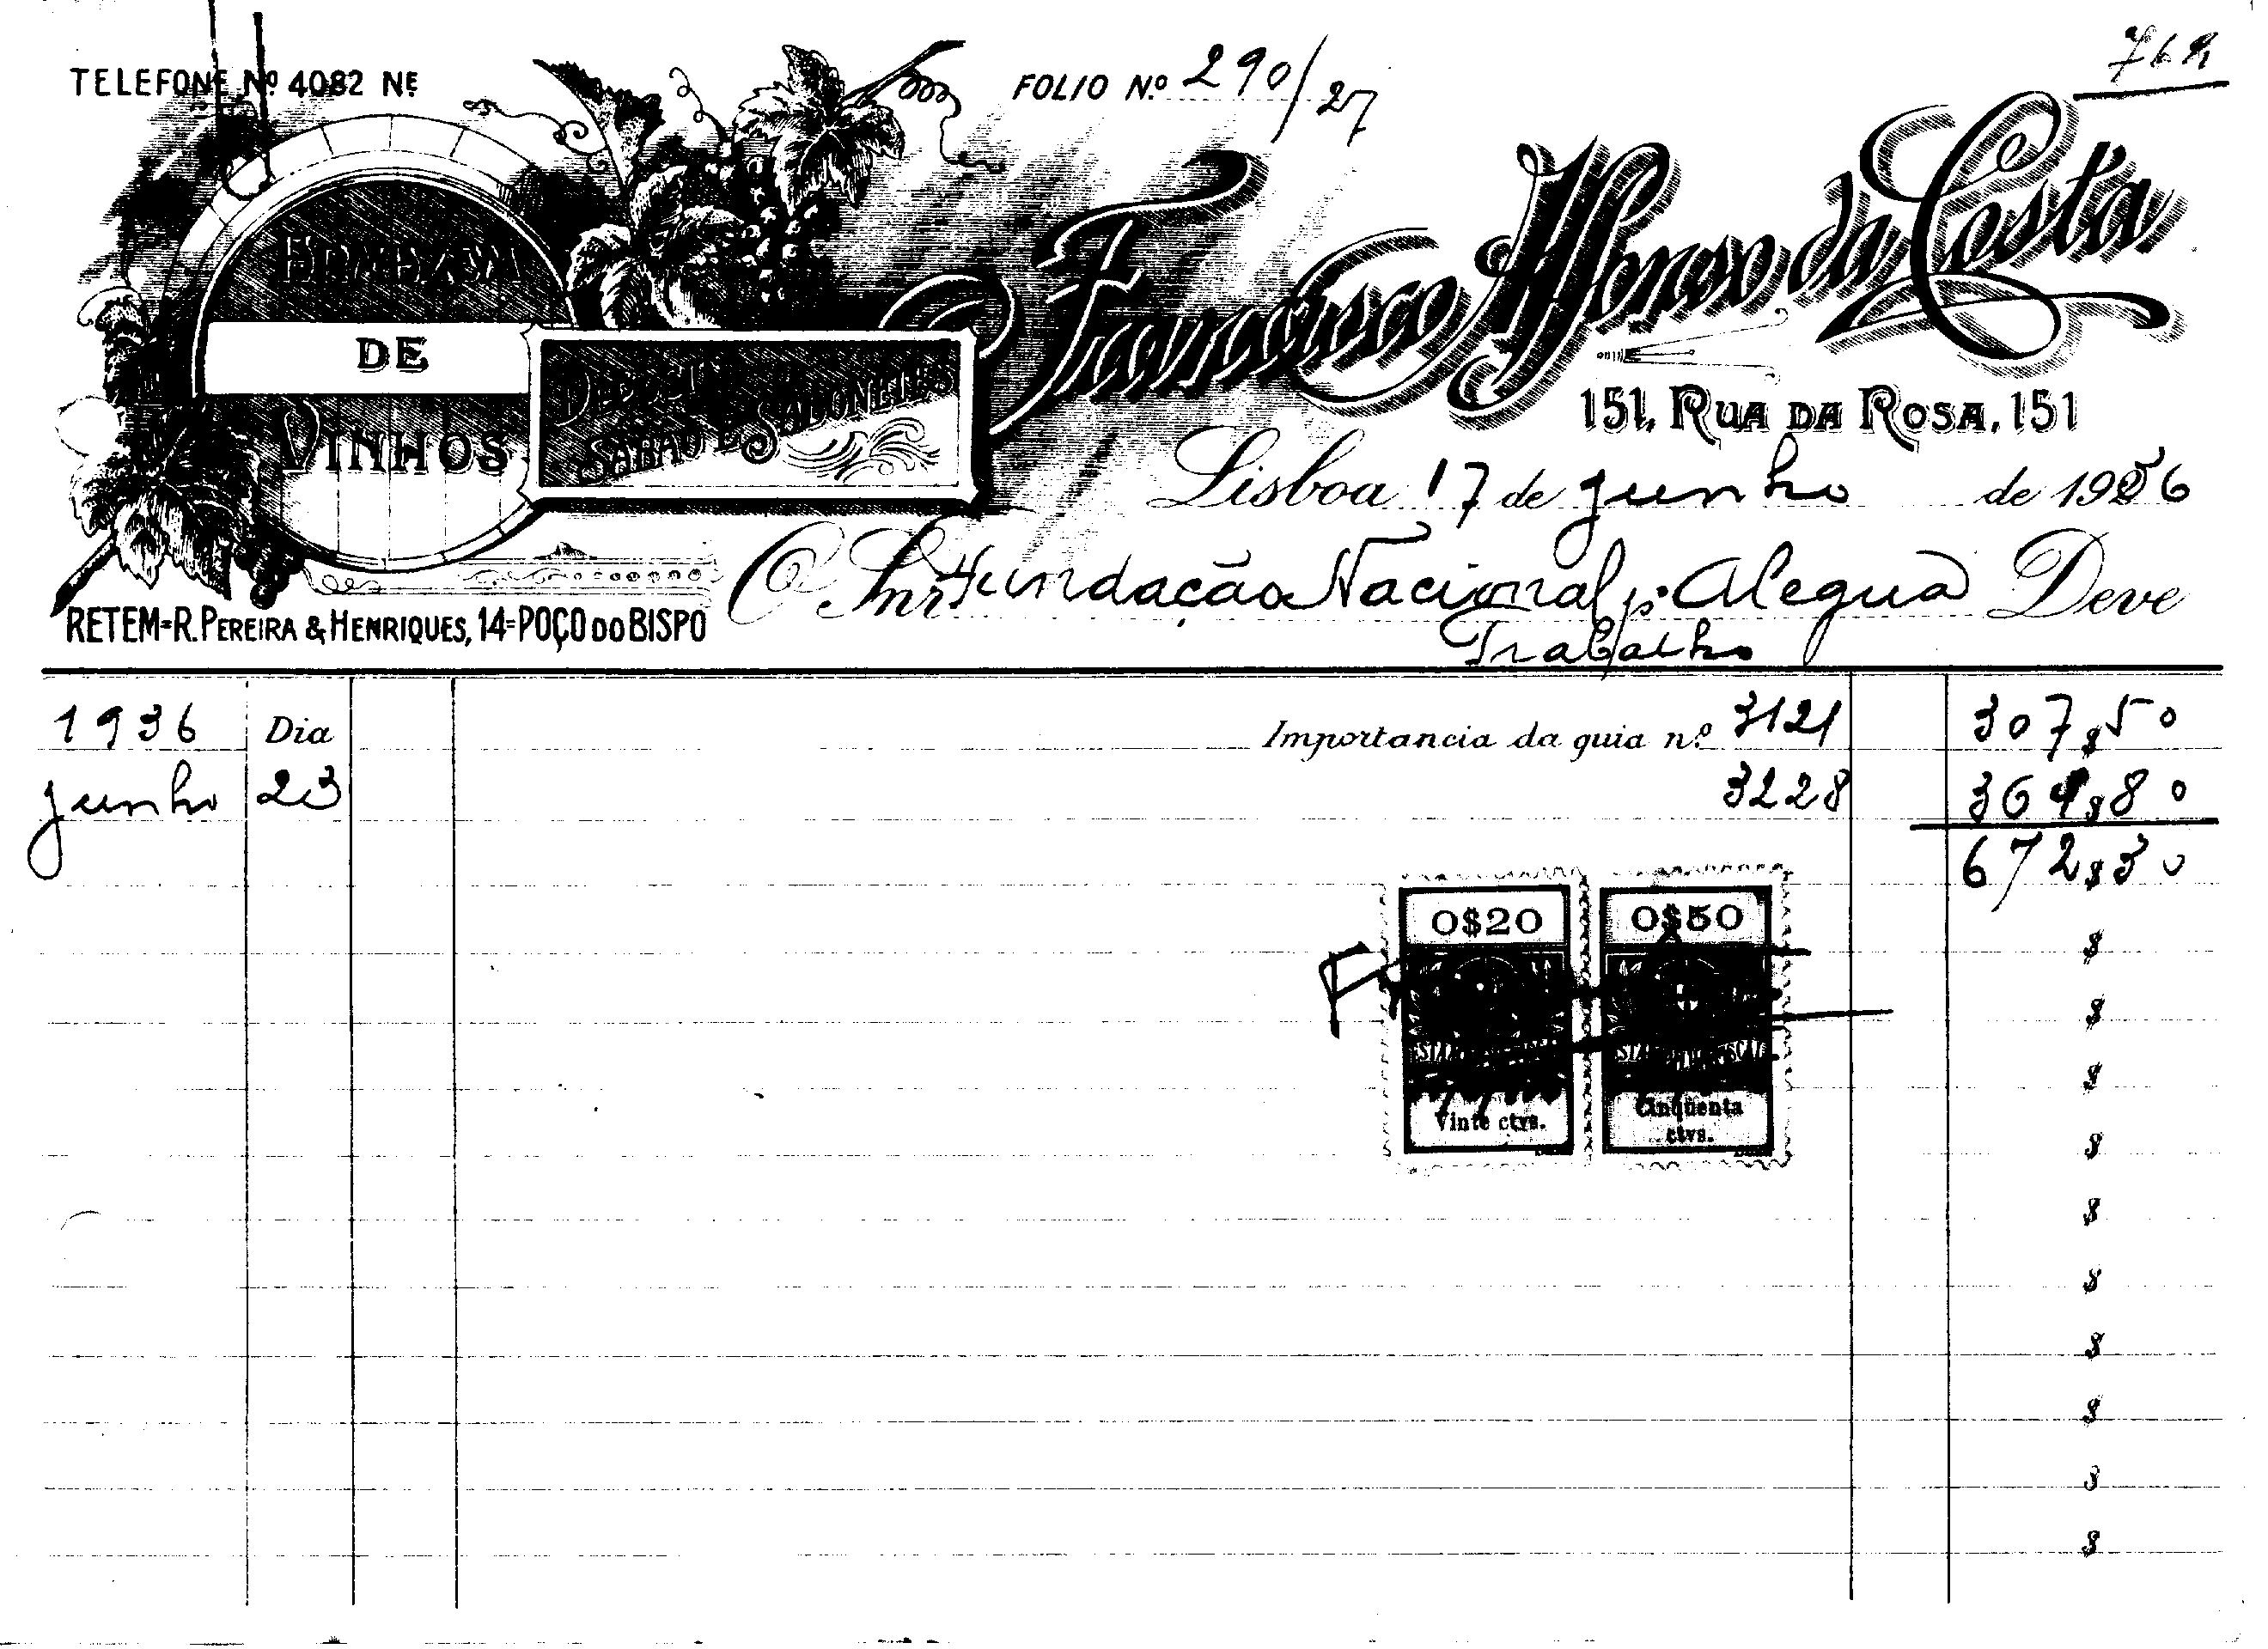 TELEFONE Nº 4082 NE
FOLIO N.º 290/27
ARMAZEM
DE
VINHOS
DEPOSITO DE
SABÃO E SABONETES
Francisco Affonso da Costa
151, RUA DA ROSA, 151
Lisboa 17 de junho de 1936
O Snr Fundação Nacional p.ª Alegria Deve
Trabalho
RETEM=R. PEREIRA & HENRIQUES, 14=POÇO DO BISPO
1936 Dia Importancia da guia n.º 3121 307$50
junho 23 3228 364$80
672$30
0$20 0$50
ESTAMPILHA FISCAL ESTAMPILHA FISCAL
Vinte ctvs. Cinqüenta
ctvs.
$
$
$
$
$
$
$
$
$
$